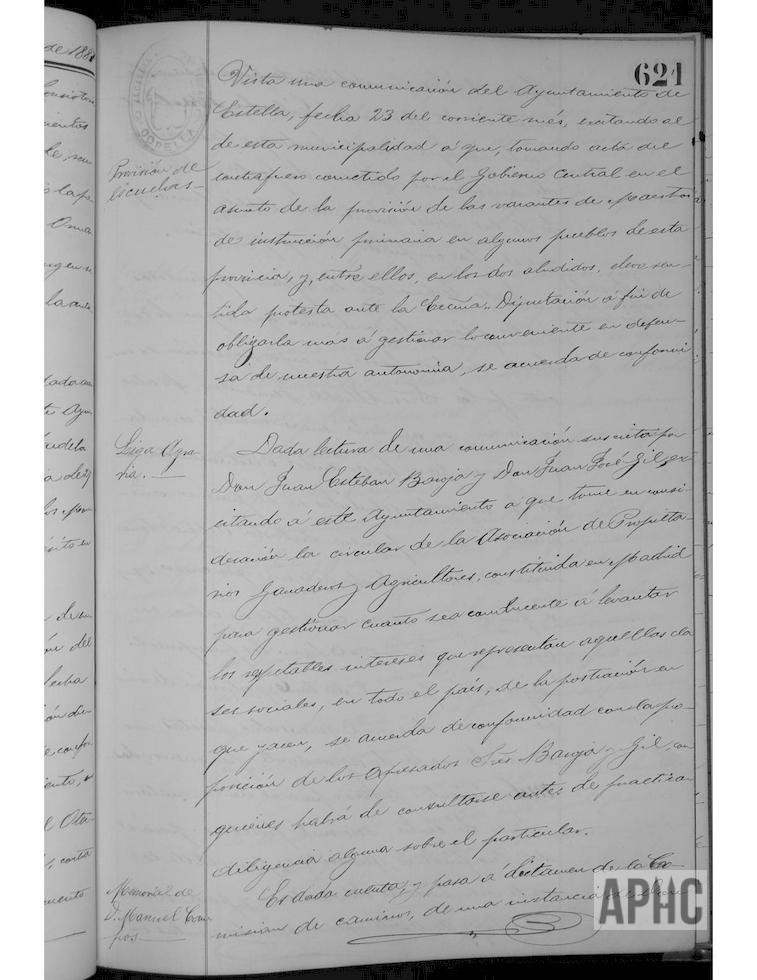 621
Vista una comunicación del Ayuntamiento de
Estella, fecha 23 del corriente mes, excitando al
de esta municipalidad á que, tomando acta del
contrafuero cometido por el Gobierno Central en el
asunto de la provisión de las vacantes de Maestros
de instrucción primaria en algunos pueblos de esta
provincia, y, entre ellos, en los dos aludidos, eleve sen-
tida protesta ante la Excma. Diputación á fin de
obligarla más á gestionar lo conveniente en defen-
sa de nuestra autonomía, se acuerda de conformi
dad.
Provisión de
escuelas—
Dada lectura de una comunicación suscrita por
Don Juan Esteban Baroja y Don Juan José Gil, ex-
citando á este Ayuntamiento a que tome en consi
deración la circular de la Asociación de Propieta-
rios Ganaderos y Agricultores, constituida en Madrid
para gestionar cuanto sea conducente á levantar
los respetables intereses que representan aquellas cla
ses sociales, en todo el país, de la postración en
que yacen, se acuerda de conformidad con la pro
posición de los expresados Sres Baroja y Gil, con
quienes habrá de consultarse antes de practicar
diligencia alguna sobre el particular.
Liga Agra-
ria.—
Es dada cuenta, y pasa á dictamen de la Co-
misión de caminos, de una instancia
Memorial de
D. Manuel Cam
pos
de 1881
APHC